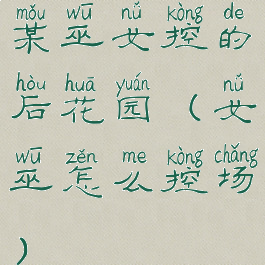 mǒu wū nǚ kòng de
某巫女控的
hòu huā yuán nǚ
后花园（女
wū zěn me kòng chǎng
巫怎么控场
）